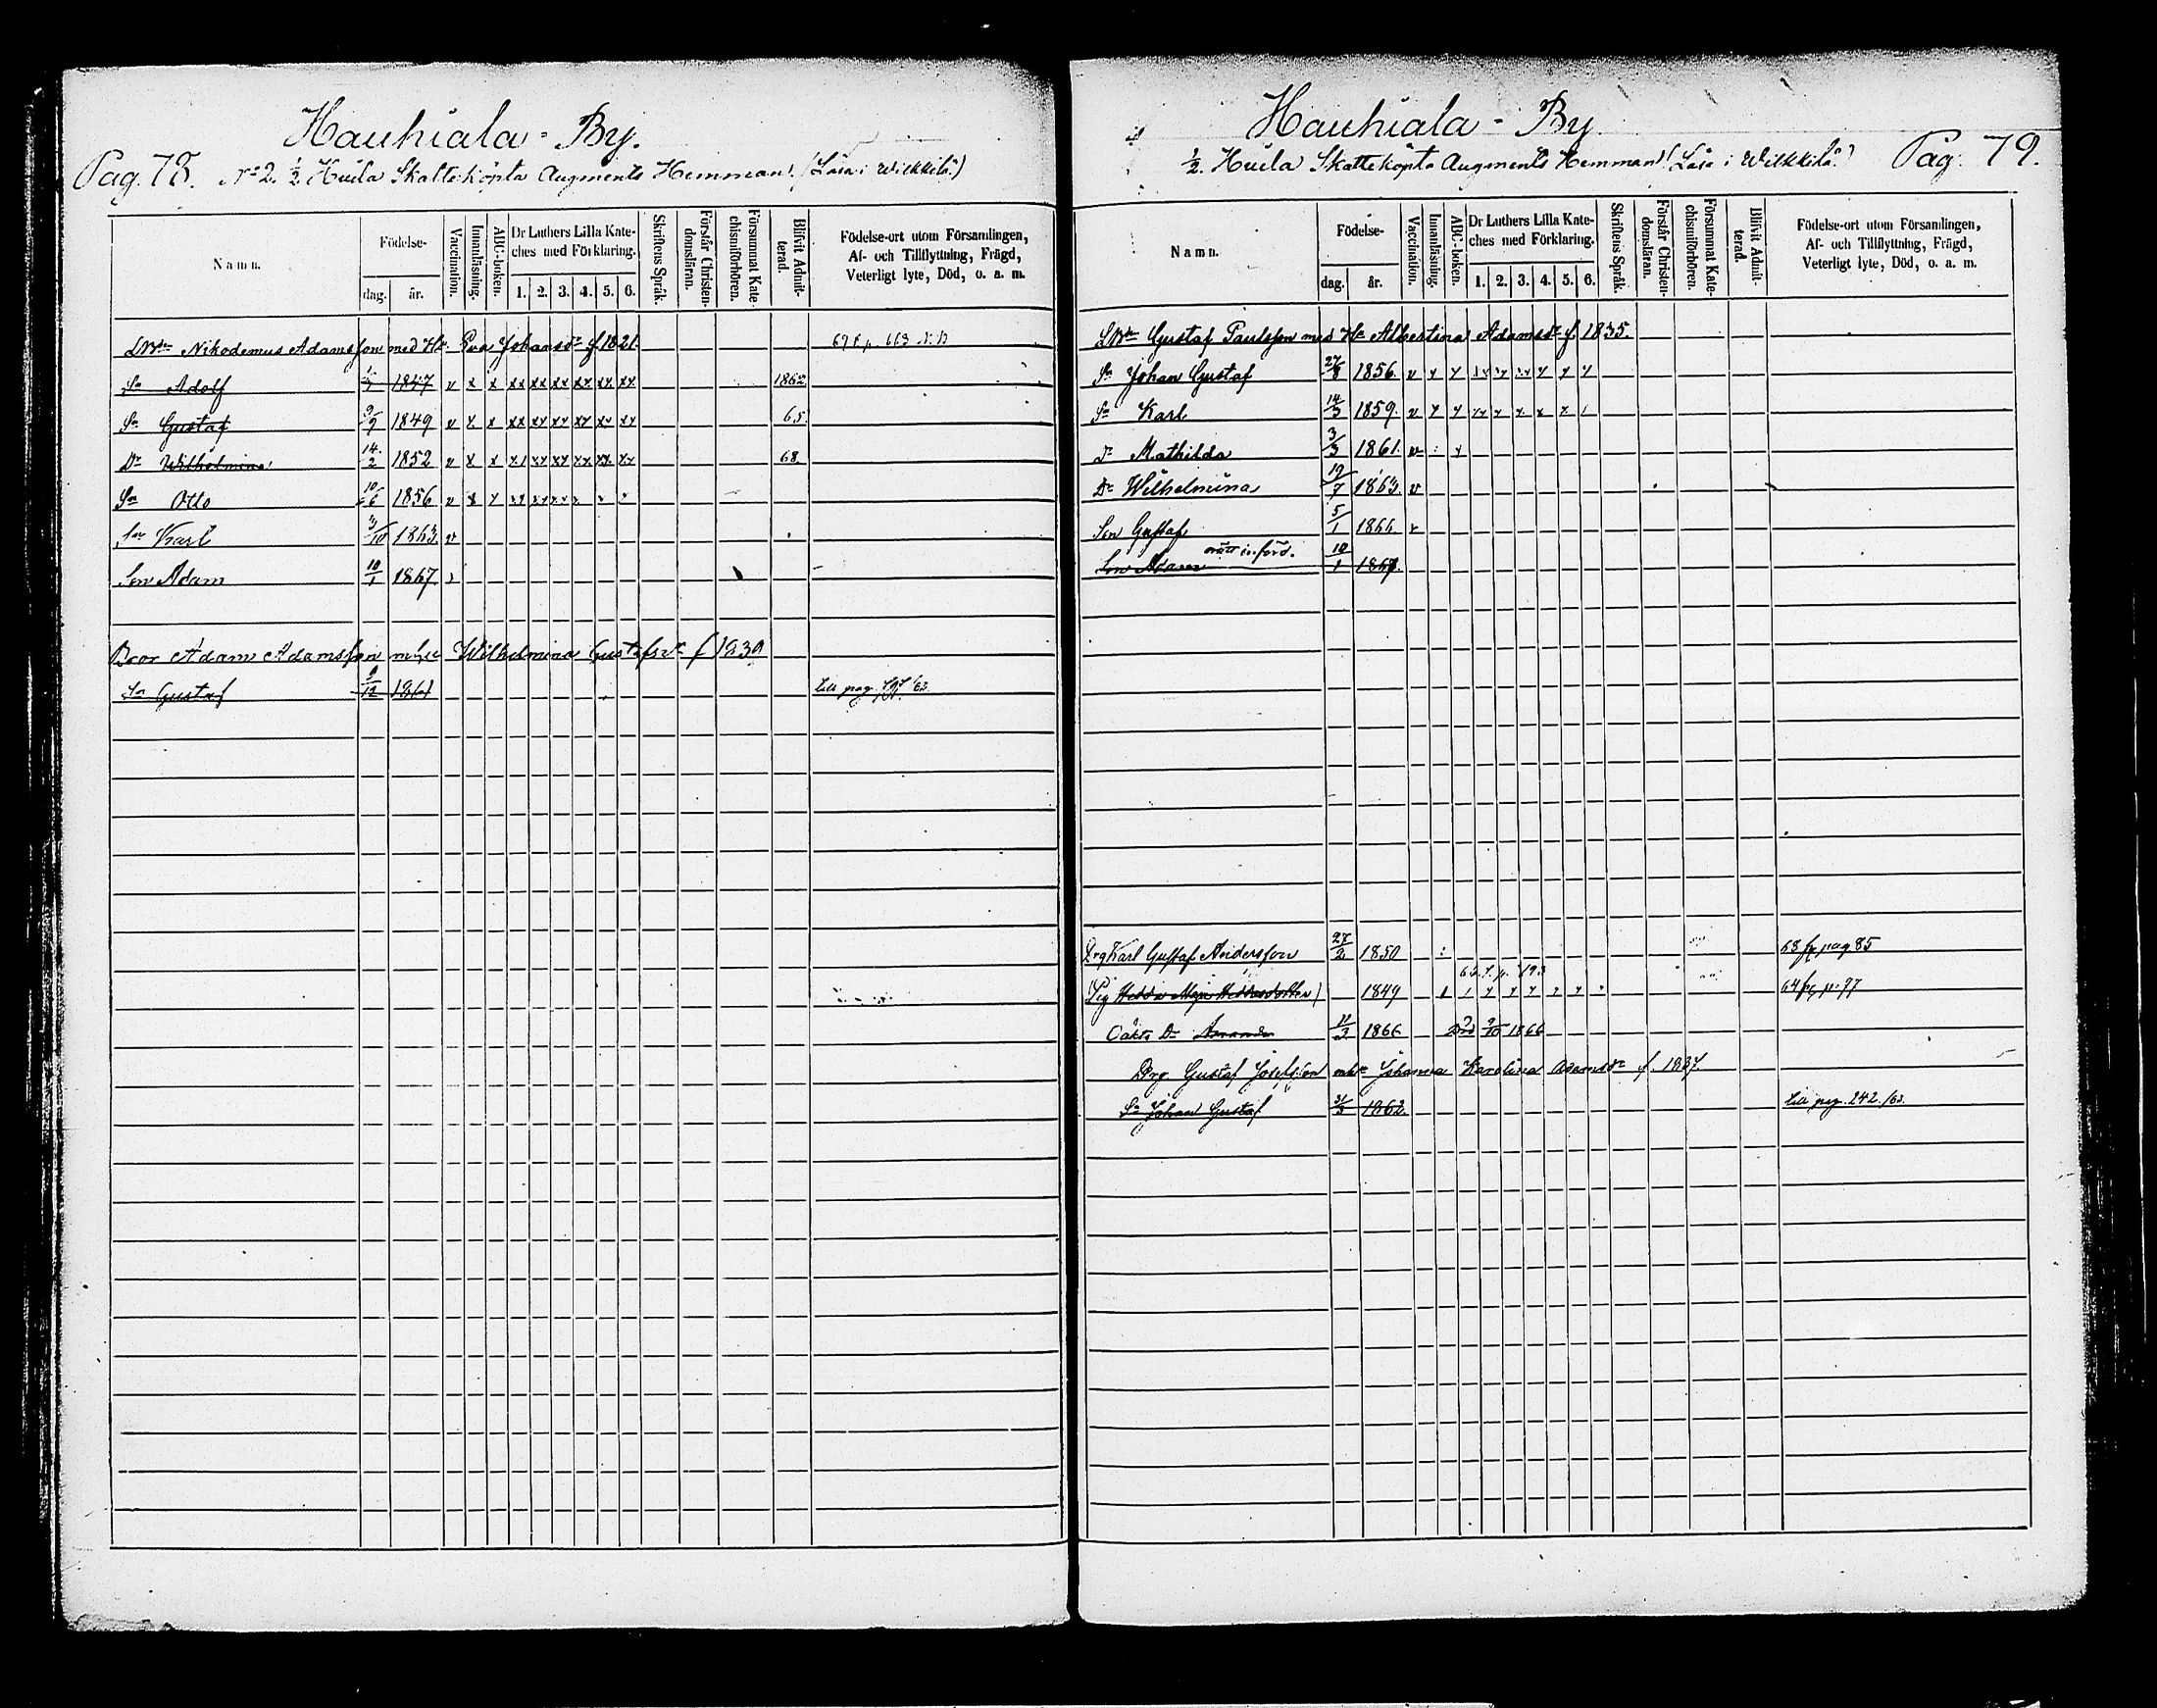 Hauhiala - By.
Pag. 78. No 2. ½ Huila Skatteköpta Augments Hemman. (Läsa i Wilkkilä)
Namn.
Födelse-
dag. år.
Vaccination.
Innanläsning.
ABC-boken.
Dr Luthers Lilla Kate-
ches med Förklaring.
1. 2. 3. 4. 5. 6.
Skriftens Språk.
Förstår Christen-
domsläran.
Försummat Kate-
chismiförhören.
Blifvit Admit-
terad.
Födelse-ort utom Församlingen,
Af- och Tillflyttning, Frägd,
Veterligt lyte, Död, o. a. m.
Nikodemus Adamsson med Hu. Eva Johansdr f. 1821.
Sn Adolf 1847 v x x xx xx xx xx xx xx 1862
Sn Gustaf 9/9 1849 v x x xx xx xx xx xx xx 65.
Dr Wilhelmina 14/2 1852 v x x x1 xx xx xx xx xx 68.
Sn Otto 10/6 1856 v x x
Son Karl 3/10 1863 v
Son Adam 10/1 1867
Bror Adam Adamsson mhu Wilhelmina Gustafsdr f 1839
Sn Gustaf 9/12 1861 till pag. /63.
Hauhiala - By.
½. Huila Skatteköpta Augments Hemman (Läsa i Wilkkilä) Pag. 79.
Namn.
Födelse-
dag. år.
Vaccination.
Innanläsning.
ABC-boken.
Dr Luthers Lilla Kate-
ches med Förklaring.
1. 2. 3. 4. 5. 6.
Skriftens Språk.
Förstår Christen-
domsläran.
Försummat Kate-
chismiförhören.
Blifvit Admit-
terad.
Födelse-ort utom Församlingen,
Af- och Tillflyttning, Frägd,
Veterligt lyte, Död, o. a. m.
Gustaf Paulsson med Hu Albertina Adamsdr f. 1835.
Sn Johan Gustaf 27/8 1856. v x x
Sn Karl 14/3 1859. v x x
Dr Mathilda 3/3 1861. v
Dr Wilhelmina 19/7 1863. v
Son Gustaf 5/1 1866.
orätt införd.
Son Adam 10/1 1867.
Drg Karl Gustaf Andersson 27/2 1850 68 fr pag 85
Pig Hedda Maja Heddasdotter 1849 64 fr p. 97
Oäkta Dr Amanda 11/3 1866 Död 9/10 1866
Drg. Gustaf Josefsson mhu Johanna Karolina Adamsdr f. 1837.
Sn Johan Gustaf 31/3 1862. till pag. 242. /63.